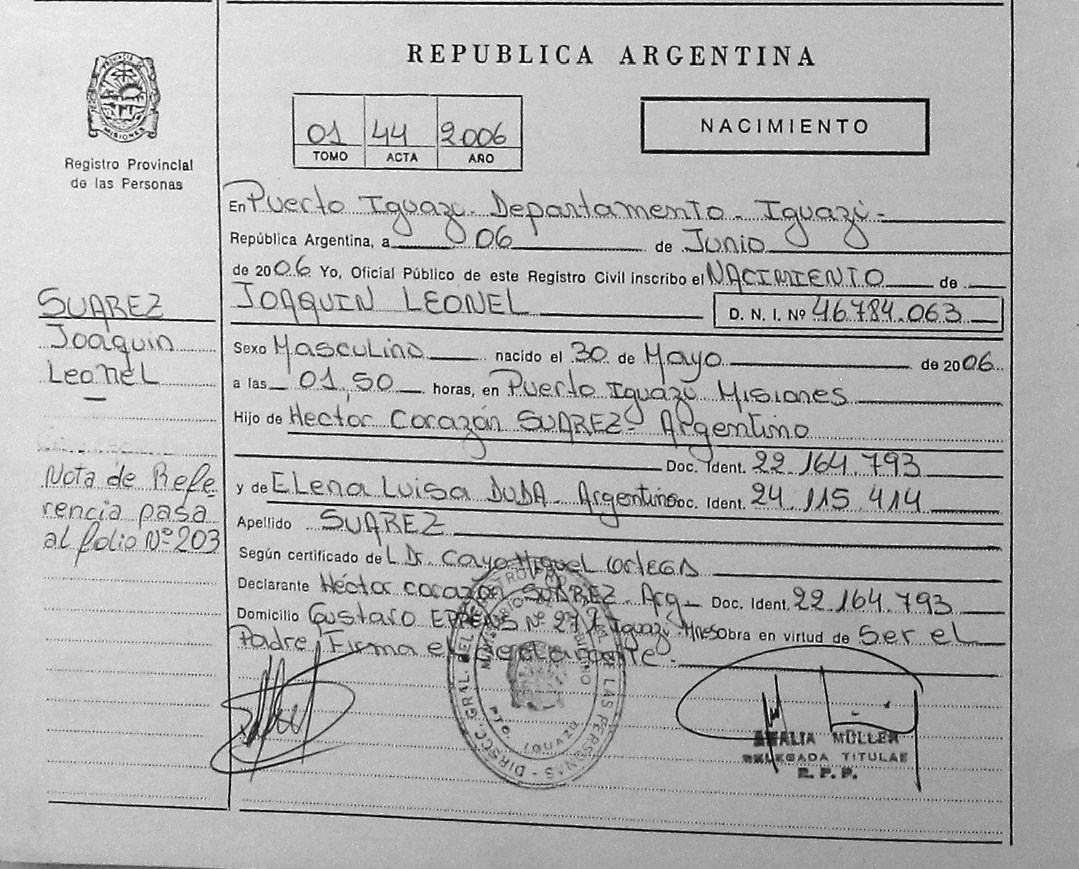 REPUBLICA ARGENTINA
PROVINCIA DE
MISIONES
Registro Provincial
de las Personas
01 44 2006
TOMO ACTA AÑO
NACIMIENTO
En Puerto Iguazú- Departamento- Iguazú-
República Argentina, a 06 de Junio
de 2006 Yo, Oficial Público de este Registro Civil inscribo el NACIMIENTO de
JOAQUIN LEONEL D. N. I. Nº 46.784.063
Sexo Masculino nacido el 30 de Mayo de 2006
a las 01,50 horas, en Puerto Iguazú Misiones
Hijo de Hector Corazón SUAREZ- Argentino
Doc. Ident. 22.164.793
y de ELena Luisa DUDA- Argentina Doc. Ident. 24.115.414
Apellido SUAREZ
Según certificado de L Dr. Cayo Miguel Ortega
Declarante Héctor corazón SUAREZ- Arg- Doc. Ident. 22.164.793
Domicilio Gustavo Nº 277 Iguazú Mnes obra en virtud de Ser el
Padre Firma el
SUAREZ
Joaquin
Leonel
Nota de Refe
rencia pasa
al folio Nº 203
DIRECC. GRAL. DEL REGISTRO DE LAS PERSONAS
MINISTERIO DE GOBIERNO
PTO. IGUAZU
AMALIA MÜLLER
DELEGADA TITULAR
R. P. P.